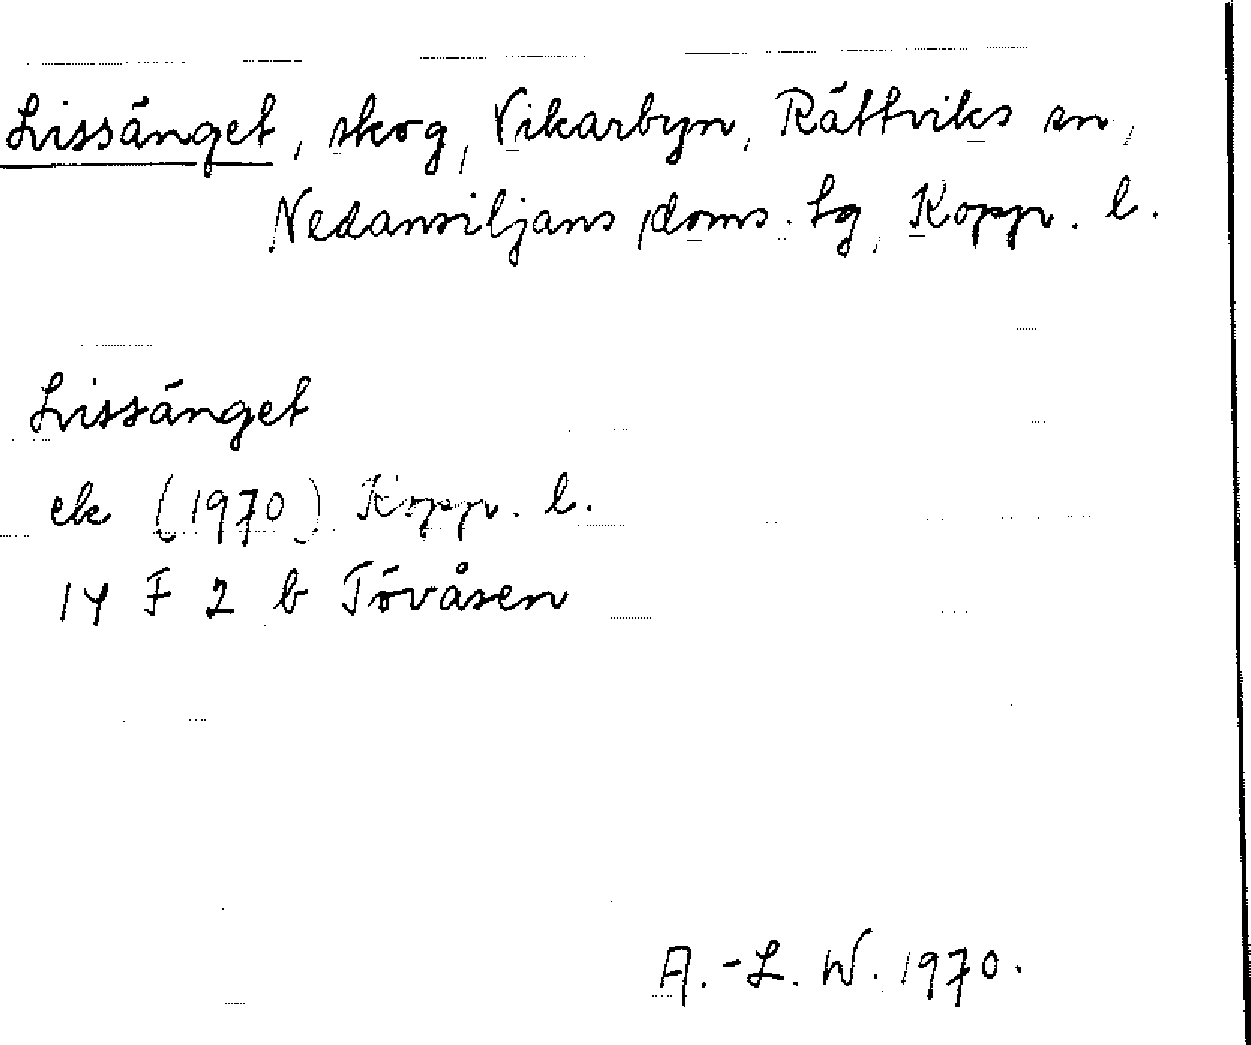 Lissänget, skog, Vikarbyn, Rättviks sn,
Nedansiljans doms. tg, Kopp. l.
Lissänget
ek (1970) Kopp. l.
14 F 2 b Tövåsen
A.-L. W. 1970.